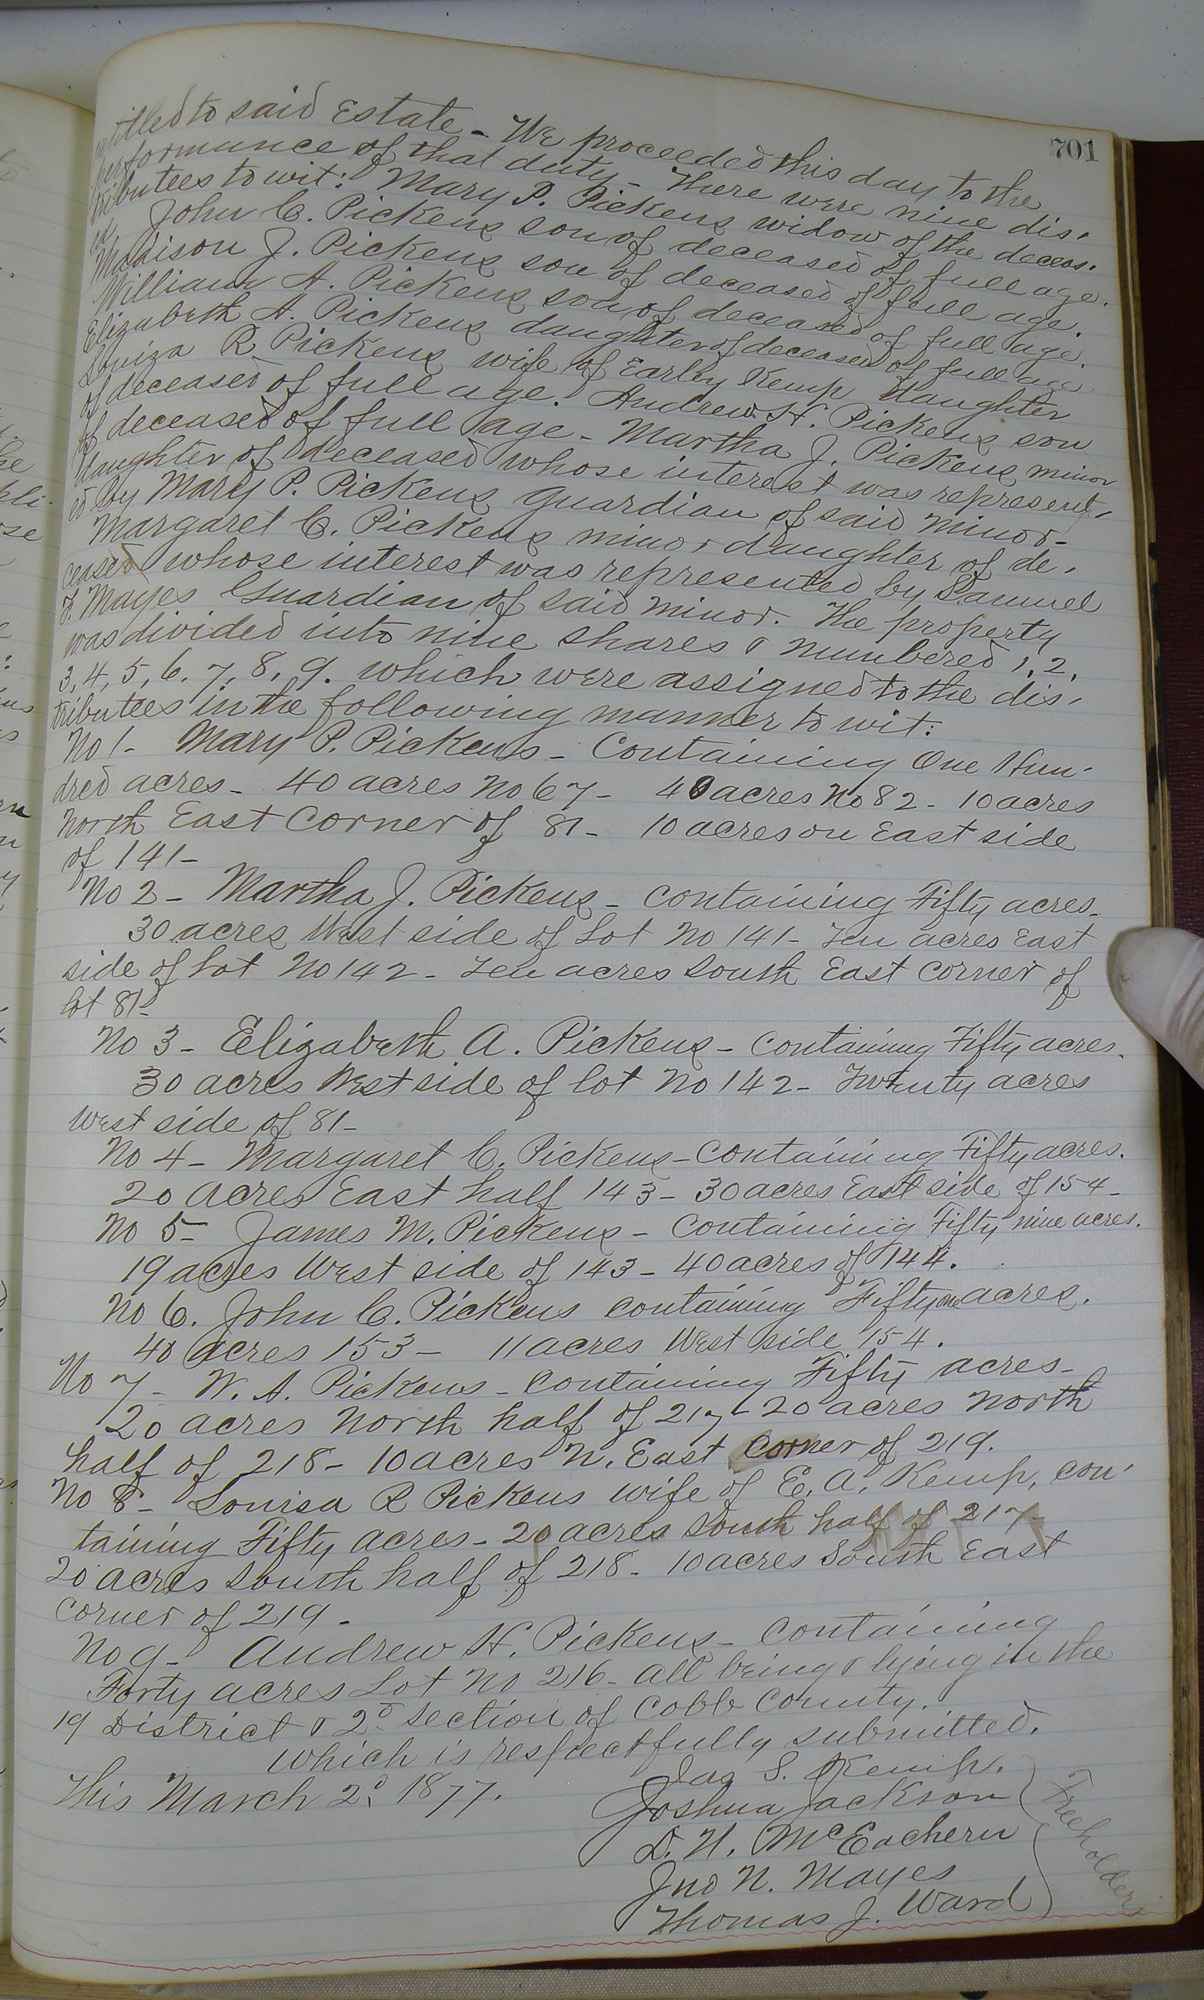 701
entitled to said Estate - We proceeded this day to the
performance of that duty - There were nine dis-
tributees to wit: Mary P. Pickens widow of the deceas-
ed, John C. Pickens son of deceased of full age.
Madison J. Pickens son of deceased of full age.
William A. Pickens son of deceased of full age.
Elizabeth A. Pickens daughter of deceased of full age
Louiza R Pickens wife of Earley Kemp daughter
of deceased of full age. Andrew H. Pickens son
of deceased of full age - Martha J. Pickens minor
daughter of deceased whose interest was represent-
ed by Mary P. Pickens guardian of said minor -
Margaret C. Pickens minor daughter of de-
ceased whose interest was represented by Samuel
F. Mayes Guardian of said minor. The property
was divided into nine shares & numbered 1, 2,
3, 4, 5, 6, 7, 8, 9. which were assigned to the dis-
tributees in the following manner to wit:
No 1 - Mary P. Pickens - Containing One Hun-
dred acres - 40 acres No 67 - 40 acres No 82 - 10 acres
North East Corner of 81 - 10 acres on East side
of 141 -
No 2 - Martha J. Pickens - containing Fifty acres -
30 acres West side of Lot No 141 - Ten acres East
side of lot No 142 - Ten acres South East corner of
lot 81 -
No 3 - Elizabeth A. Pickens - containing Fifty acres -
30 acres West side of lot No 142 - Twenty acres
West side of 81 -
No 4 - Margaret C. Pickens - Containing Fifty acres.
20 acres East half 143 - 30 acres East side of 154 -
No 5 - James M. Pickens - Containing Fifty nine acres.
19 acres West side of 143 - 40 acres of 144.
No 6. John C. Pickens containing Fifty one acres.
40 acres 153 - 11 acres West side 154.
No 7 - W. A. Pickens - containing Fifty acres -
20 acres North half of 217 - 20 acres North
half of 218 - 10 acres N. East corner of 219.
No 8 - Louisa R Pickens wife of E. A. Kemp, con-
taining Fifty acres - 20 acres South half of 217 -
20 acres South half of 218 - 10 acres South East
corner of 219 -
No 9 - Andrew H. Pickens - Containing
Forty acres Lot No 216 - all being & lying in the
19 District & 2d section of Cobb County.
which is respectfully submitted.
This March 2d 1877.
Jas S. Kemp.
Joshua Jackson
D. N. McEachern
Jno N. Mayes
Thomas J. Ward
Freeholders